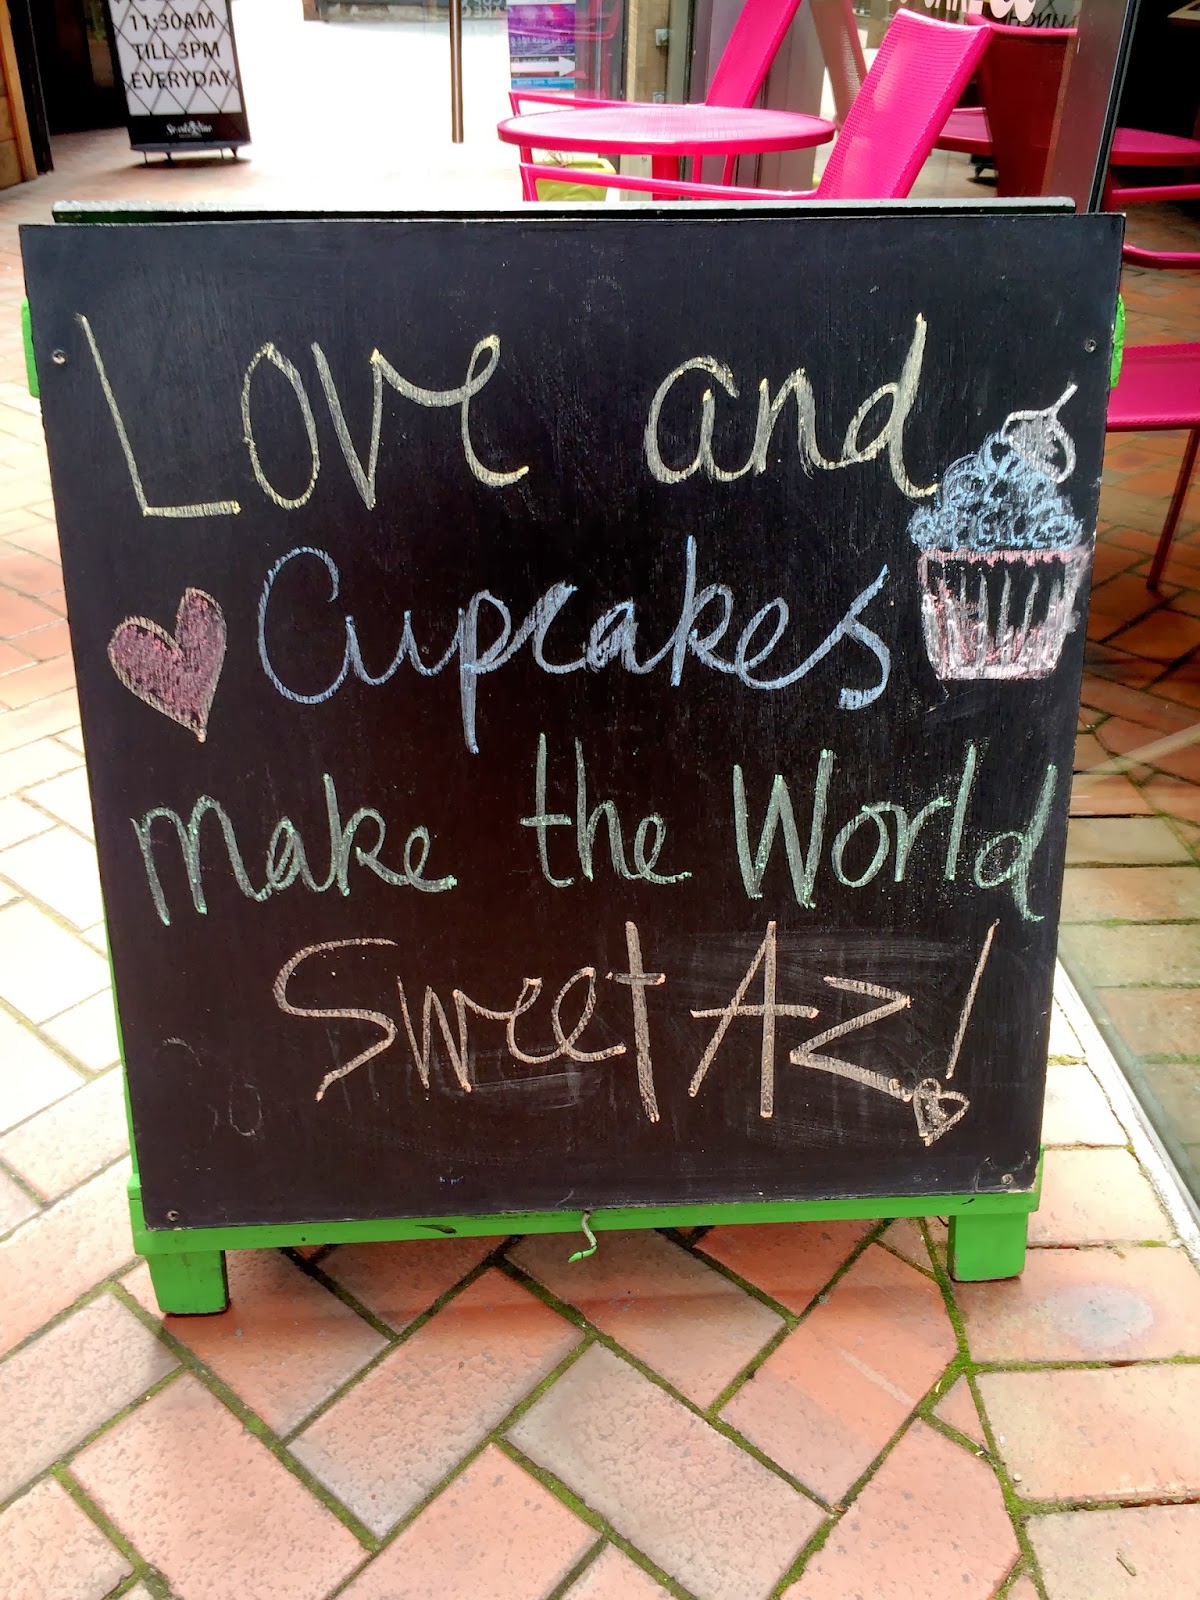 11:30AM
TILL 3PM
EVERYDAY
Love and
Cupcakes
make the World
Sweet Az!